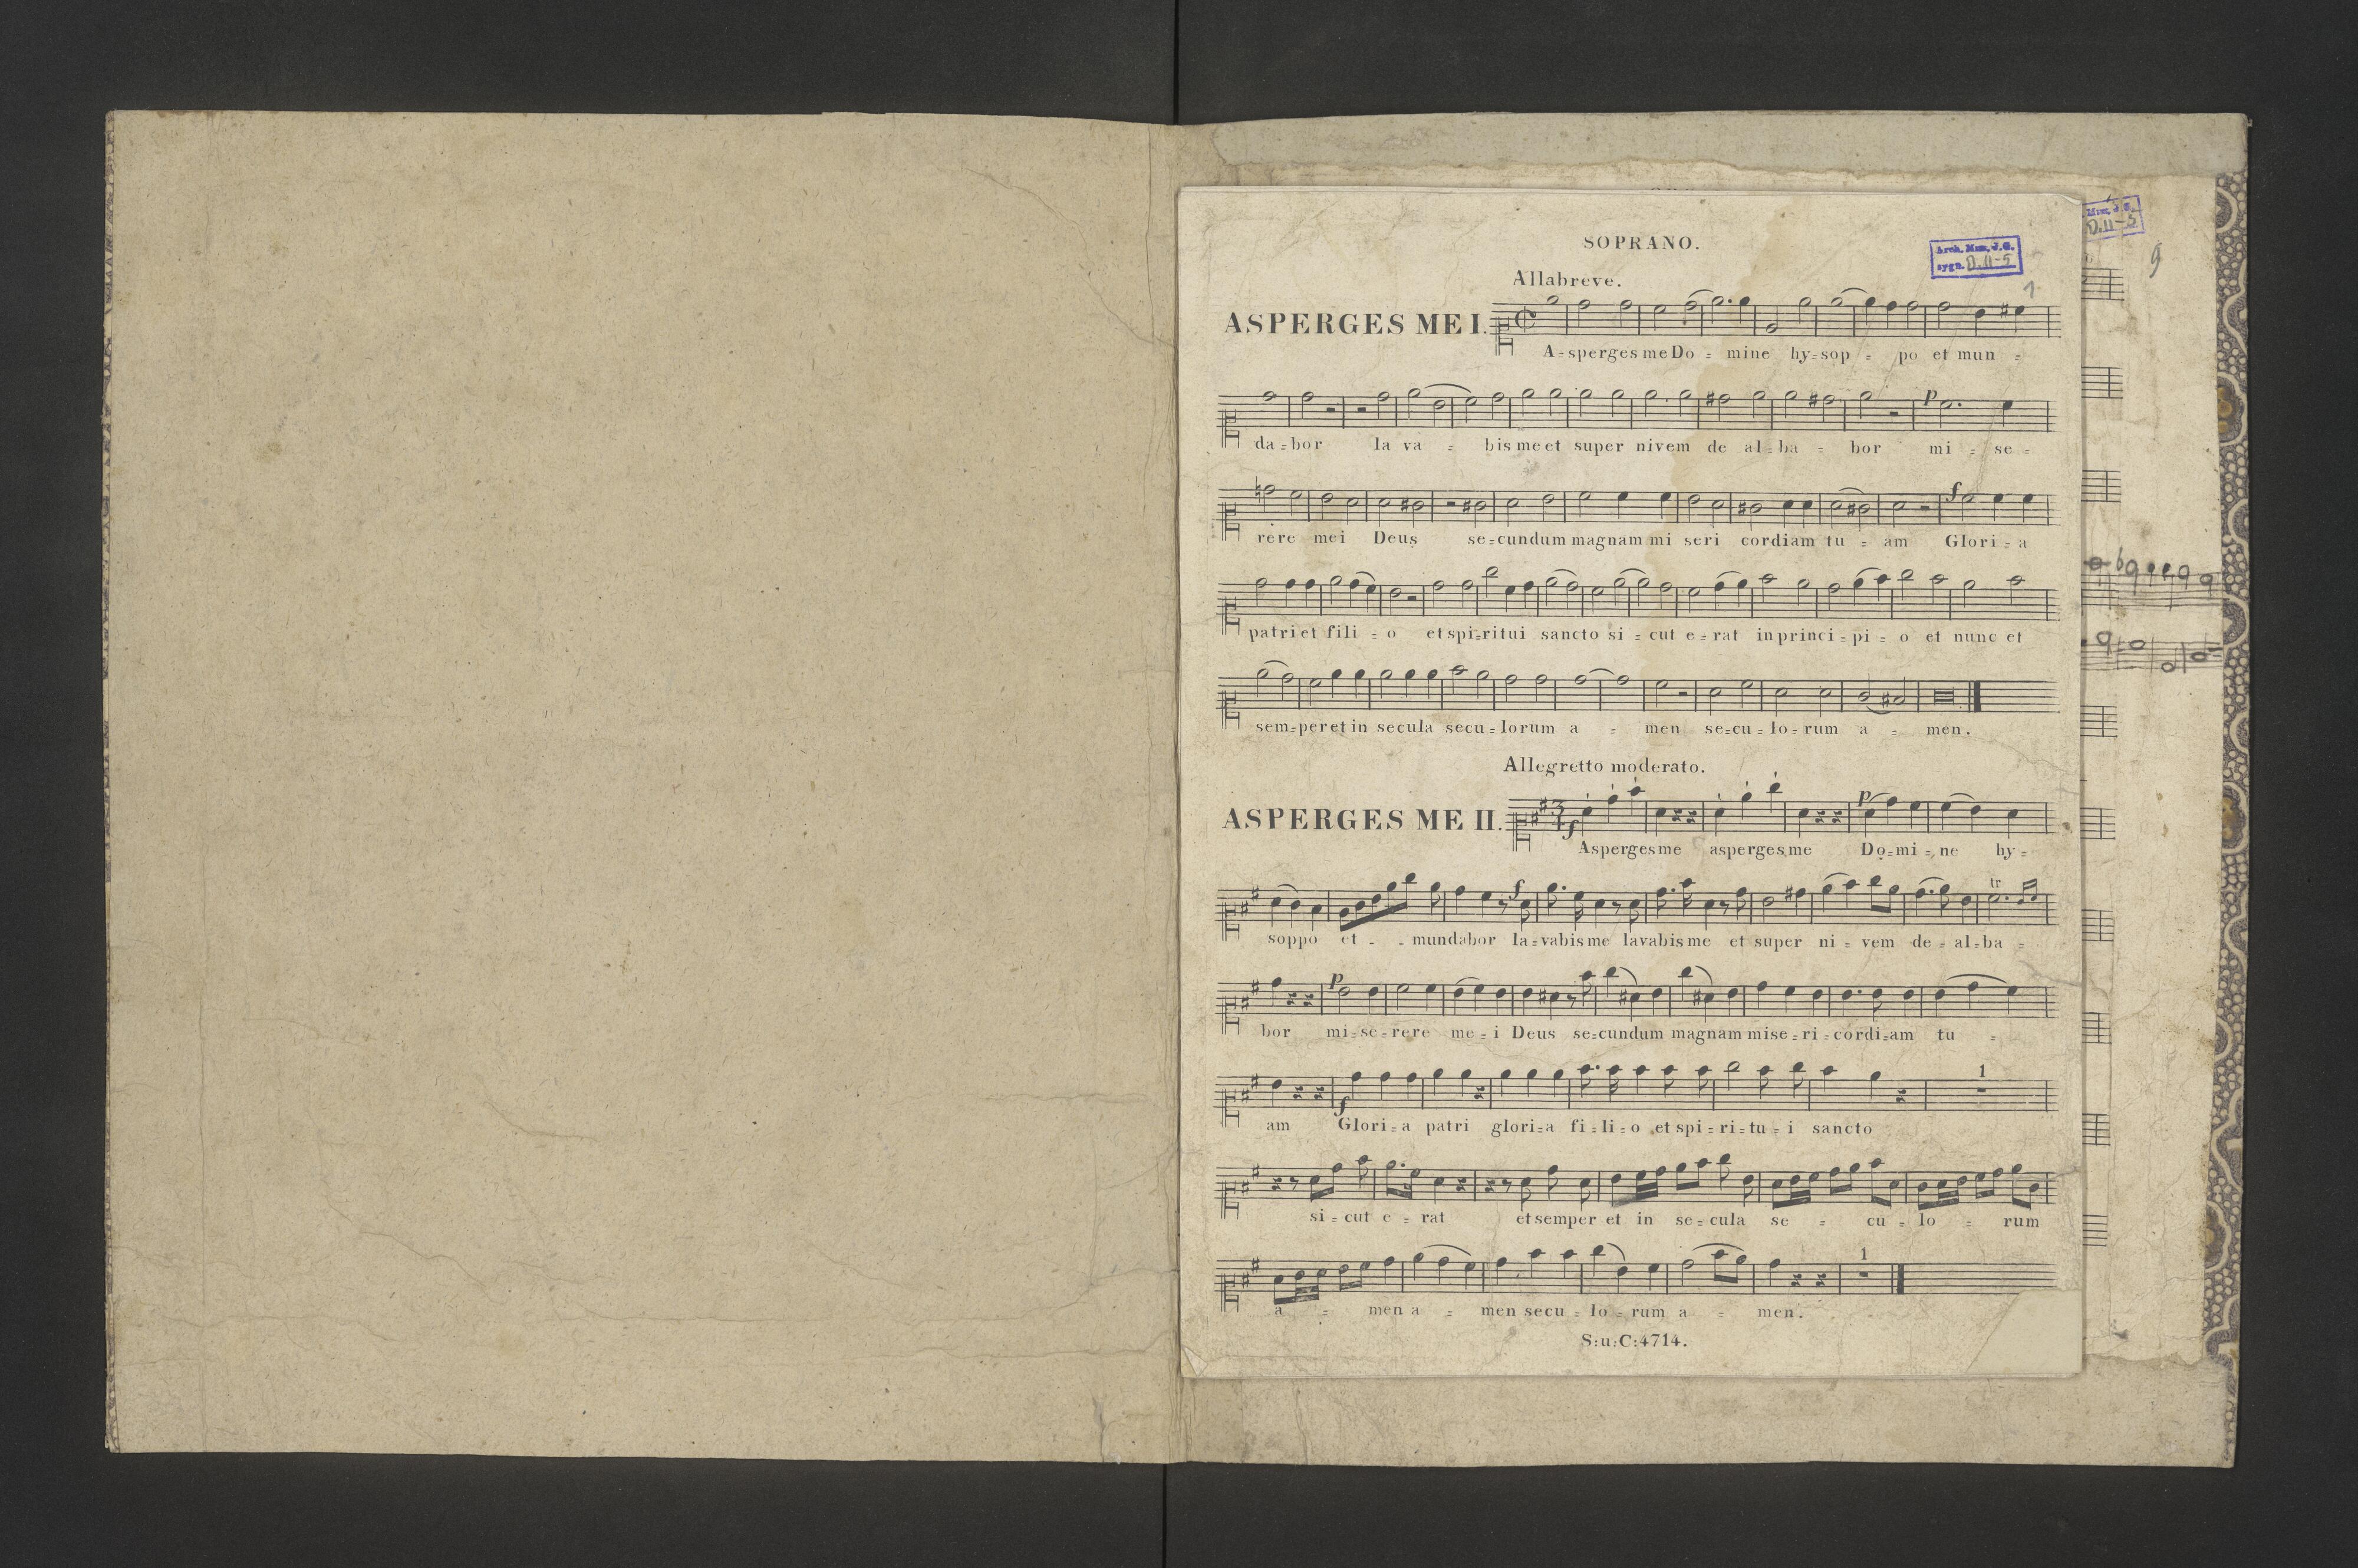 SOPRANO.
Arch. Muz. J.G.
sygn. D.II-5
Muz. J.G.
D.II-5
1
9
Allabreve.
ASPERGES ME I.
A=sperges me Do = mine hy=sop = po et mun =
p
da=bor la va = bis me et super nivem de al=ba = bor mi = se =
f
rere mei Deus se=cundum magnam mi seri cordiam tu = am Glori=a
patri et fili = o et spi=ritui sancto si = cut e=rat in princi=pi = o et nunc et
sem=per et in secula secu=lorum a = men se=cu=lo=rum a = men.
Allegretto moderato.
ASPERGES ME II.
f p
Asperges me asperges me Do=mi=ne hy=
f tr
soppo et - - mundabor la=vabis me lavabis me et super ni = vem de = al=ba =
p
bor mi=se=rere me=i Deus se=cundum magnam mise=ri=cordi=am tu =
f 1
am Glori=a patri glori=a fi=li=o et spi=ri=tu=i sancto
si=cut e = rat et semper et in se=cula se = cu = lo = rum
1
a = men a = men secu = lo = rum a = men.
S:u:C:4714.